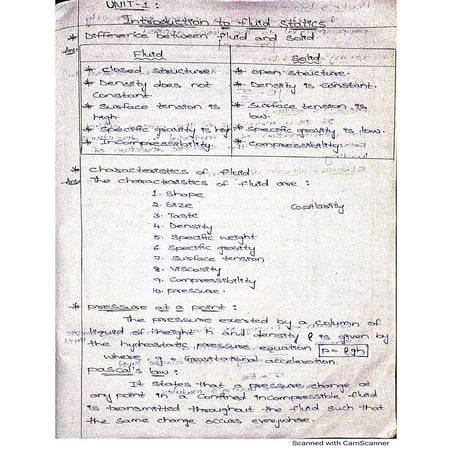 UNIT-1:
Introduction to fluid statics
* Difference between fluid and solid
Fluid
Solid
* closed structure.
* open structure.
* Density does not constant.
* Density is constant.
* Surface tension is high.
* Surface tension is low.
* Specific gravity is high
* Specific gravity is low.
* Incompressibility
* compressibility
* characteristics of fluid:
The characteristics of fluid are:
1. Shape
2. Size
Capilarity
3. Taste
4. Density
5. Specific weight
6. Specific gravity
7. Surface tension
8. Viscosity
9. Compressibility
10. pressure.
* pressure at a point:
The pressure exerted by a column of
liquid of height h and density ρ is given by
the hydrostatic pressure equation p = ρgh
where g = Gravitational acceleration.
pascal's law:
It states that a pressure change at
any point in a confined incompressible fluid
is transmitted throughout the fluid such that
the same change occurs everywhere.
Scanned with CamScanner